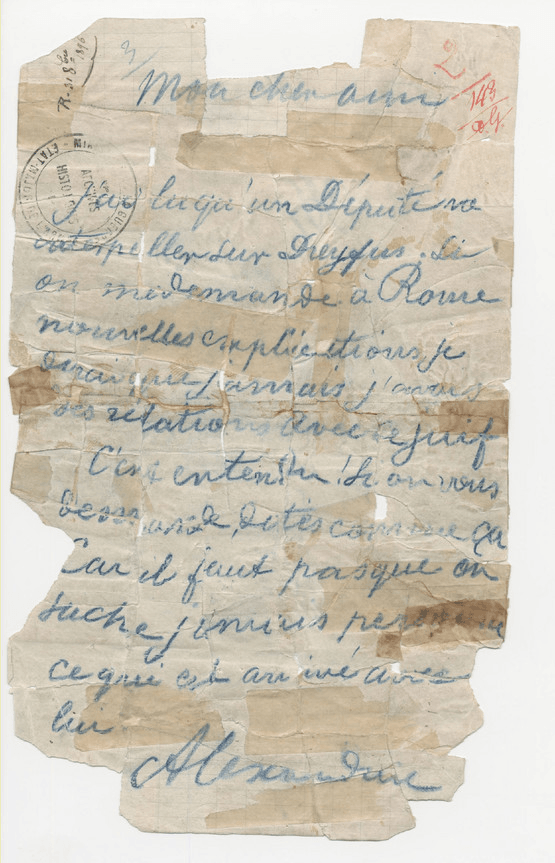 2
3/
R. 3186
1896
143
Mon cher ami
J'ai lu qu'un Député va
interpeller sur Dreyfus. Si
on me demande à Rome
nouvelles explications, je
dirai que jamais j'avais
des relations avec ce juif
C'est entendu! Si on vous
demande, dites comme ça
Car il faut pas que on
sache jamais personne
ce qui est arrivé avec
lui
Alexandrine